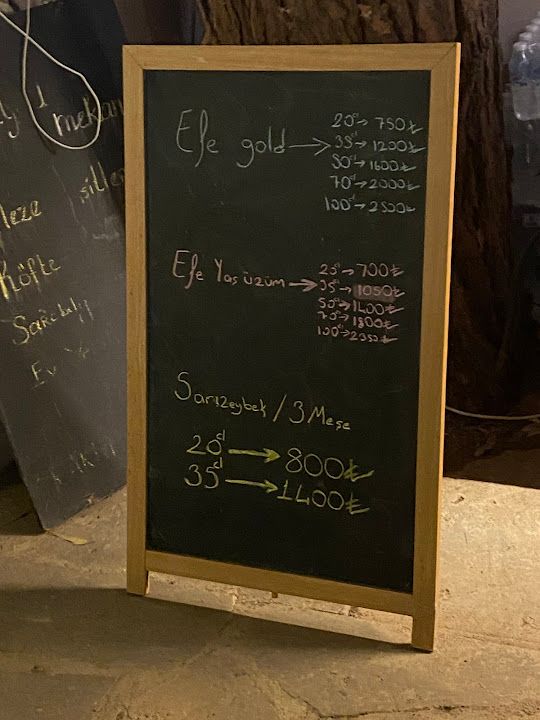 mekan
Köfte
Efe gold → 20cl → 750₺
35cl → 1200₺
50cl → 1600₺
70cl → 2000₺
100cl → 2500₺
Efe Yaş üzüm → 20cl → 700₺
35cl → 1050₺
50cl → 1400₺
70cl → 1800₺
100cl → 2350₺
Sarızeybek / 3 Meşe
20cl → 800₺
35cl → 1400₺